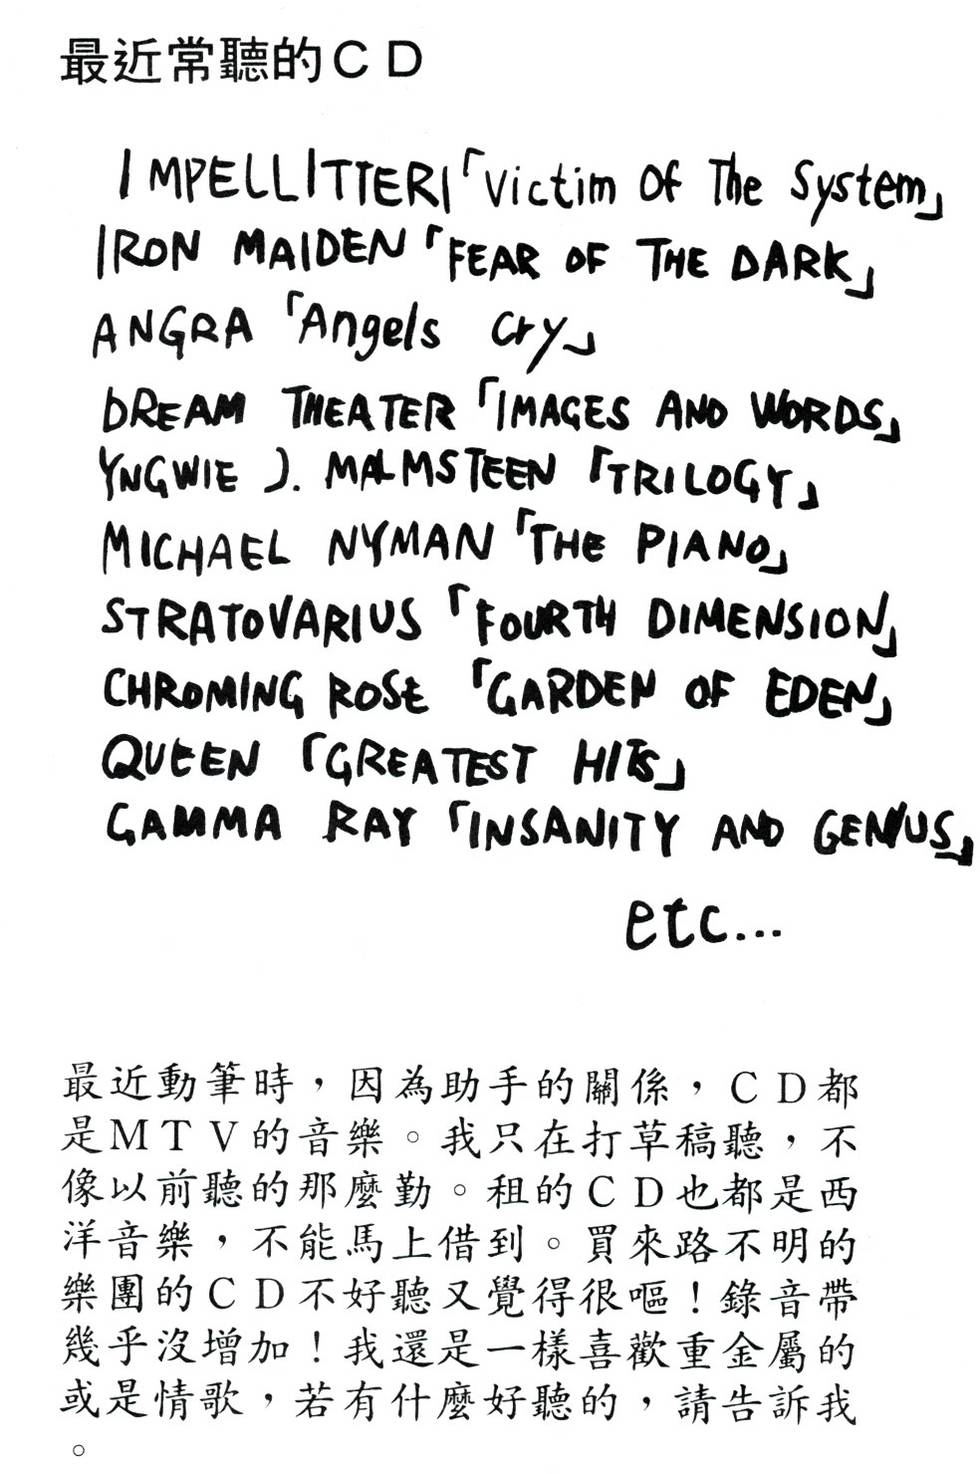 最近常聽的CD
IMPELLITTERI「Victim Of The System」
IRON MAIDEN「FEAR OF THE DARK」
ANGRA「Angels Cry」
DREAM THEATER「IMAGES AND WORDS」
YNGWIE J. MALMSTEEN「TRILOGY」
MICHAEL NYMAN「THE PIANO」
STRATOVARIUS「FOURTH DIMENSION」
CHROMING ROSE「GARDEN OF EDEN」
QUEEN「GREATEST HITS」
GAMMA RAY「INSANITY AND GENIUS」
etc...
最近動筆時，因為助手的關係，CD都
是MTV的音樂。我只在打草稿聽，不
像以前聽的那麼勤。租的CD也都是西
洋音樂，不能馬上借到。買來路不明的
樂團的CD不好聽又覺得很嘔！錄音帶
幾乎沒增加！我還是一樣喜歡重金屬的
或是情歌，若有什麼好聽的，請告訴我
。